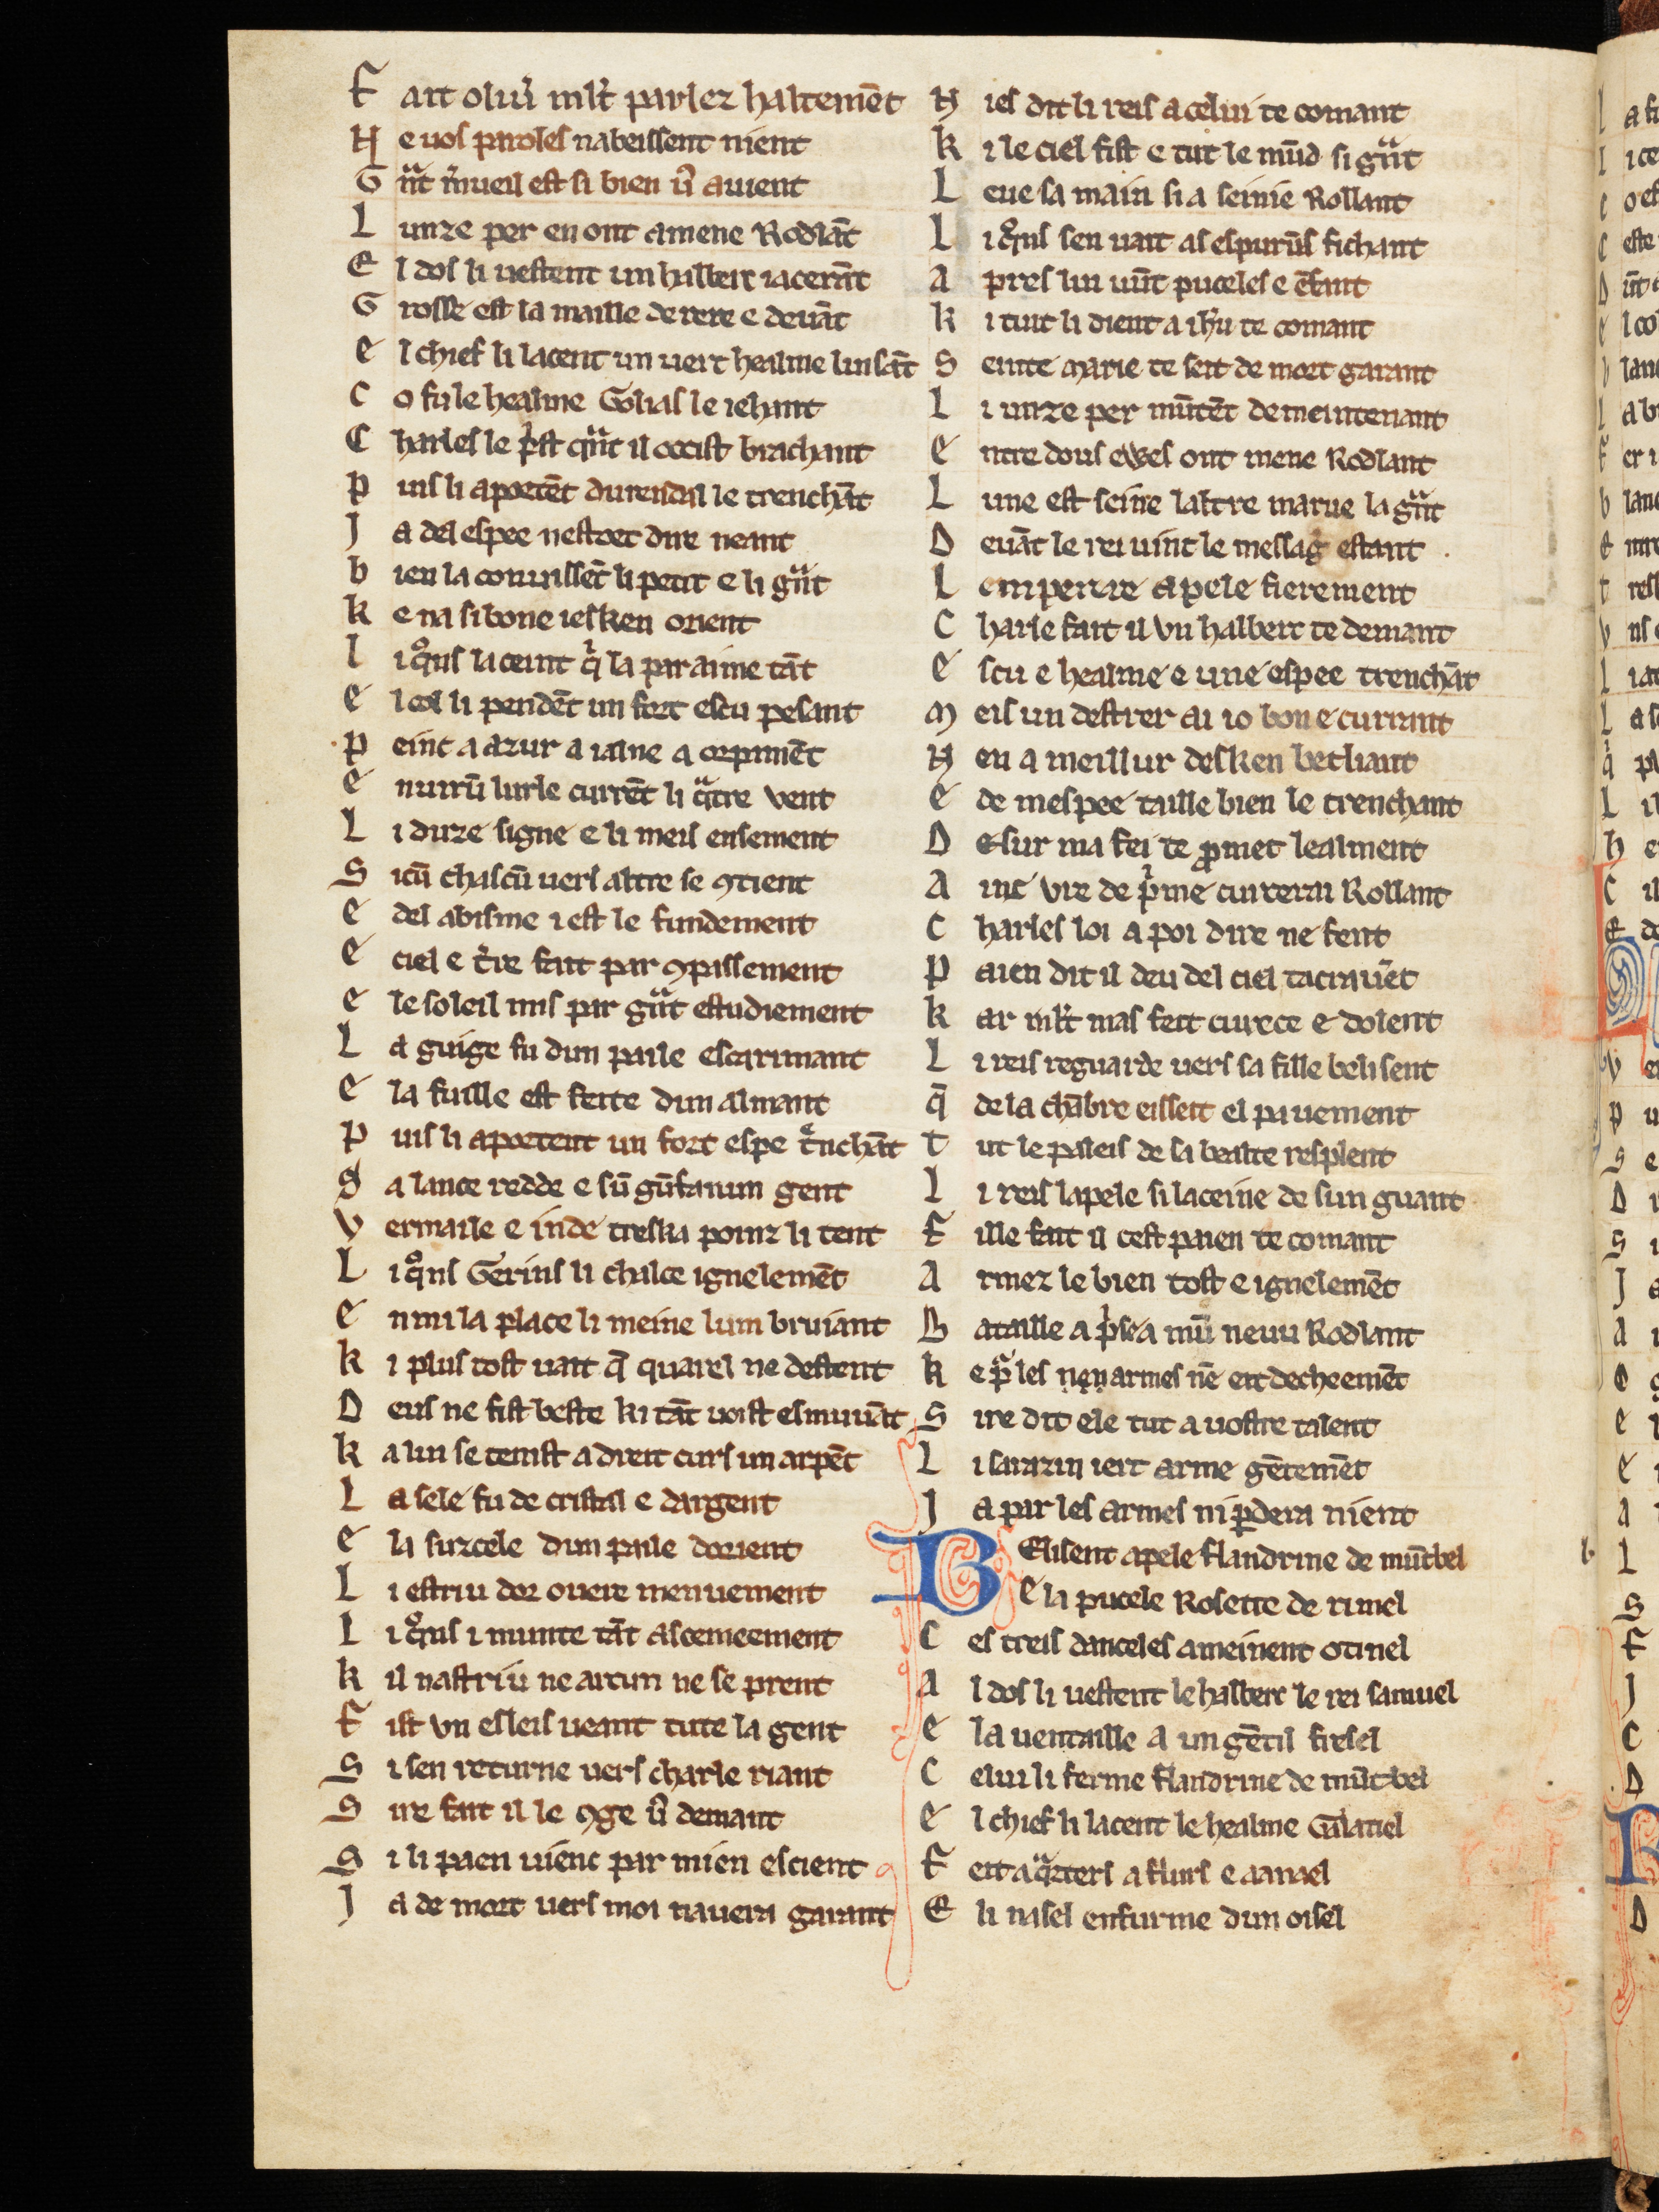 F ait oliu̾ mlt̾ parlez haltemēt
N e uos paroles nabeissent nient
G nͣt m̾ueil est si bien u̾ auient
L unze per en ont amene Rodlāt
E l dos li uestent un halberc iacerāt
G rosse est la maille derere e deuāt
e l chief li lacent un uert healme luisāt
C o fu le healme Golias le iehant
C harles le pͥst qͣnt il occist brachant
p uis li aportēt durendal le trenchāt
J a del espee nestoet dire neant
b ien la conuissēt li petit e li gͣnt
k e na si bone iesken orient
l i qͦns la ceint qͥ la par aime tāt
e l col li pendēt un fort escu pesant
p eint a azur a ialne a orpimēt
e nuirū lurle currēt li qͣtre vent
L i duze signe e li meis ensement
S icū chascū uers altre se ꝯtient
e del abisme i est le fundement
e ciel e t̾re fait par ꝯpassement
e le soleil mis par gͣnt estudiement
L a guige fu dun paile escarimant
e la fuille est feite dun almant
p uis li aportent un fort espe tͤnchāt
S a lance redde e sū gūfanun gent
V ermaile e inde treska poinz li tent
L i qͦns Gerins li chalce ignelemēt
e nmi la place li meine lum bruiant
k i plus tost uait q̄ quarel ne destent
D eus ne fist beste ki tāt uoist esmuuāt
k a lui se tenist a dreit curs un arpēt
L a sele fu de cristal e dargent
e la surcele dun paile dorient
L i estriu dor ouere menuement
L i qͦns i munte tāt ascemeement
k il nastriu ne arcun ne se prent
F ist vn esleis ueant tute la gent
S i sen returne uers charle riant
S ire fait il le ꝯge u̾ demant
S i li paen uienc par mien escient
J a de mort uers moi nauera garant
N ies dit li reis a celui te comant
k i le ciel fist e tut le mūd si gͣnt
L eue sa main si a seinie Rollant
L i qͦns sen uait as espurūs fichant
A pres lui uūt puceles e ēfant
k i tuit li dient a ih̄u te comant
S einte marie te seit de mort garant
L i unze per mūtēt demeintenant
e ntre dous ewes ont mene Rodlant
L une est seine laltre marne la gͣnt
D euāt le rei uint le messag̾ estant .
L emperere apele fierement
C harle fait il vn halberc te demant
e scu e healme e une espee trenchāt
M eis un destrer ai io bon e currant
N en a meillur desken betliant
e de mespee taille bien le trenchant
D esur ma fei te ꝓmet lealment
A inc vre de pͥme cuirerai Rollant
C harles loi a poi dire ne fent
p aien dit il deu del ciel tacrauēt
k ar mlt̾ mas feit curece e dolent
L i reis reguarde uers sa fille belisent
q̄ de la chābre eisseit el pauement
t ut le paleis de sa bealte resplent
l i reis lapele si laceine de sun guant
F ille fait il cest paien te comant
A rmez le bien tost e ignelemēt
B ataille a pͥse a mū neuu Rodlant
k e pͣ les nen armes nē eit decheemēt
S ire dit ele tut a uostre talent
L i sarazin iert arme gētemēt
J a par les armes ni ꝑdera nient
BElisent apele flandrine de mūtbel
e la pucele Rosette de runel
C es treis danceles ameinent otinel
A l dos li uestent le halberc le rei samuel
e la uentaille a un gētil fresel
C elui li ferme flandrine de mūtbel
e l chief li lacent le healme Galatiel
F eit a qͣrters a flurs e a anael
E li nasel enfurme dun oisel